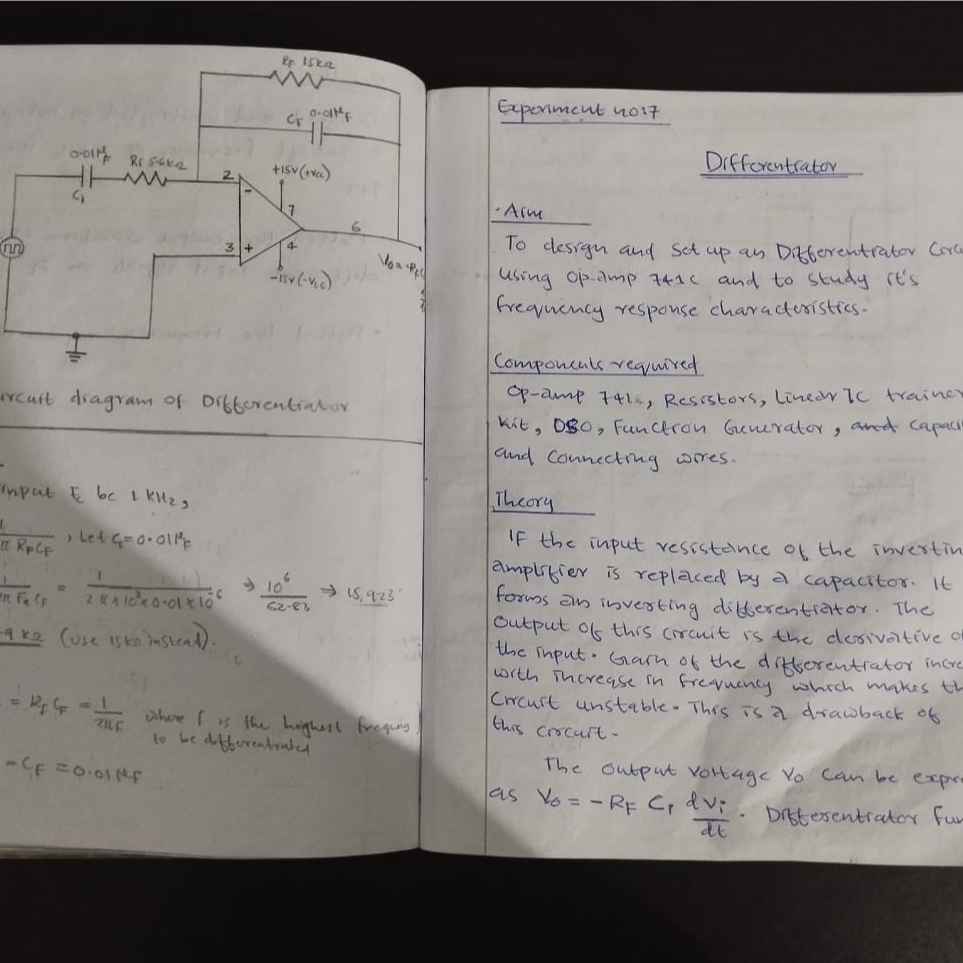 RF 15kΩ
CF 0.01μF
0.01μF
C1
R1 5.6kΩ
+15V(+Vcc)
2
-
7
6
3
+
4
-15V(-Vcc)
Vo = -RF
ircuit diagram of Differentiator
input be 1 kHz,
RFCF , Let CF=0.01μF
= 1 / 2π×10³×0.01×10⁻⁶ ⇒ 10⁶ / 62.83 ⇒ 15,923
kΩ (use 15kΩ instead).
= RF CF = 1 / 2πF where F is the highest
to be differentiated
CF = 0.01μF
Experiment no:7
Differentiator
• Aim
To design and set up an Differentiator
using op-amp 741C and to study it's
frequency response characteristics.
Components required
Op-amp 741, Resistors, Linear IC trainer
kit, DSO, Function Generator, and
and connecting wires.
Theory
IF the input resistance of the
amplifier is replaced by a capacitor. It
forms an inverting differentiator. The
output of this circuit is the derivative
the input. Gain of the differentiator
with increase in frequency which makes
circuit unstable. This is a drawback of
this circuit.
The output voltage Vo can be
as Vo = - RF C1 dVi / dt . Differentiator